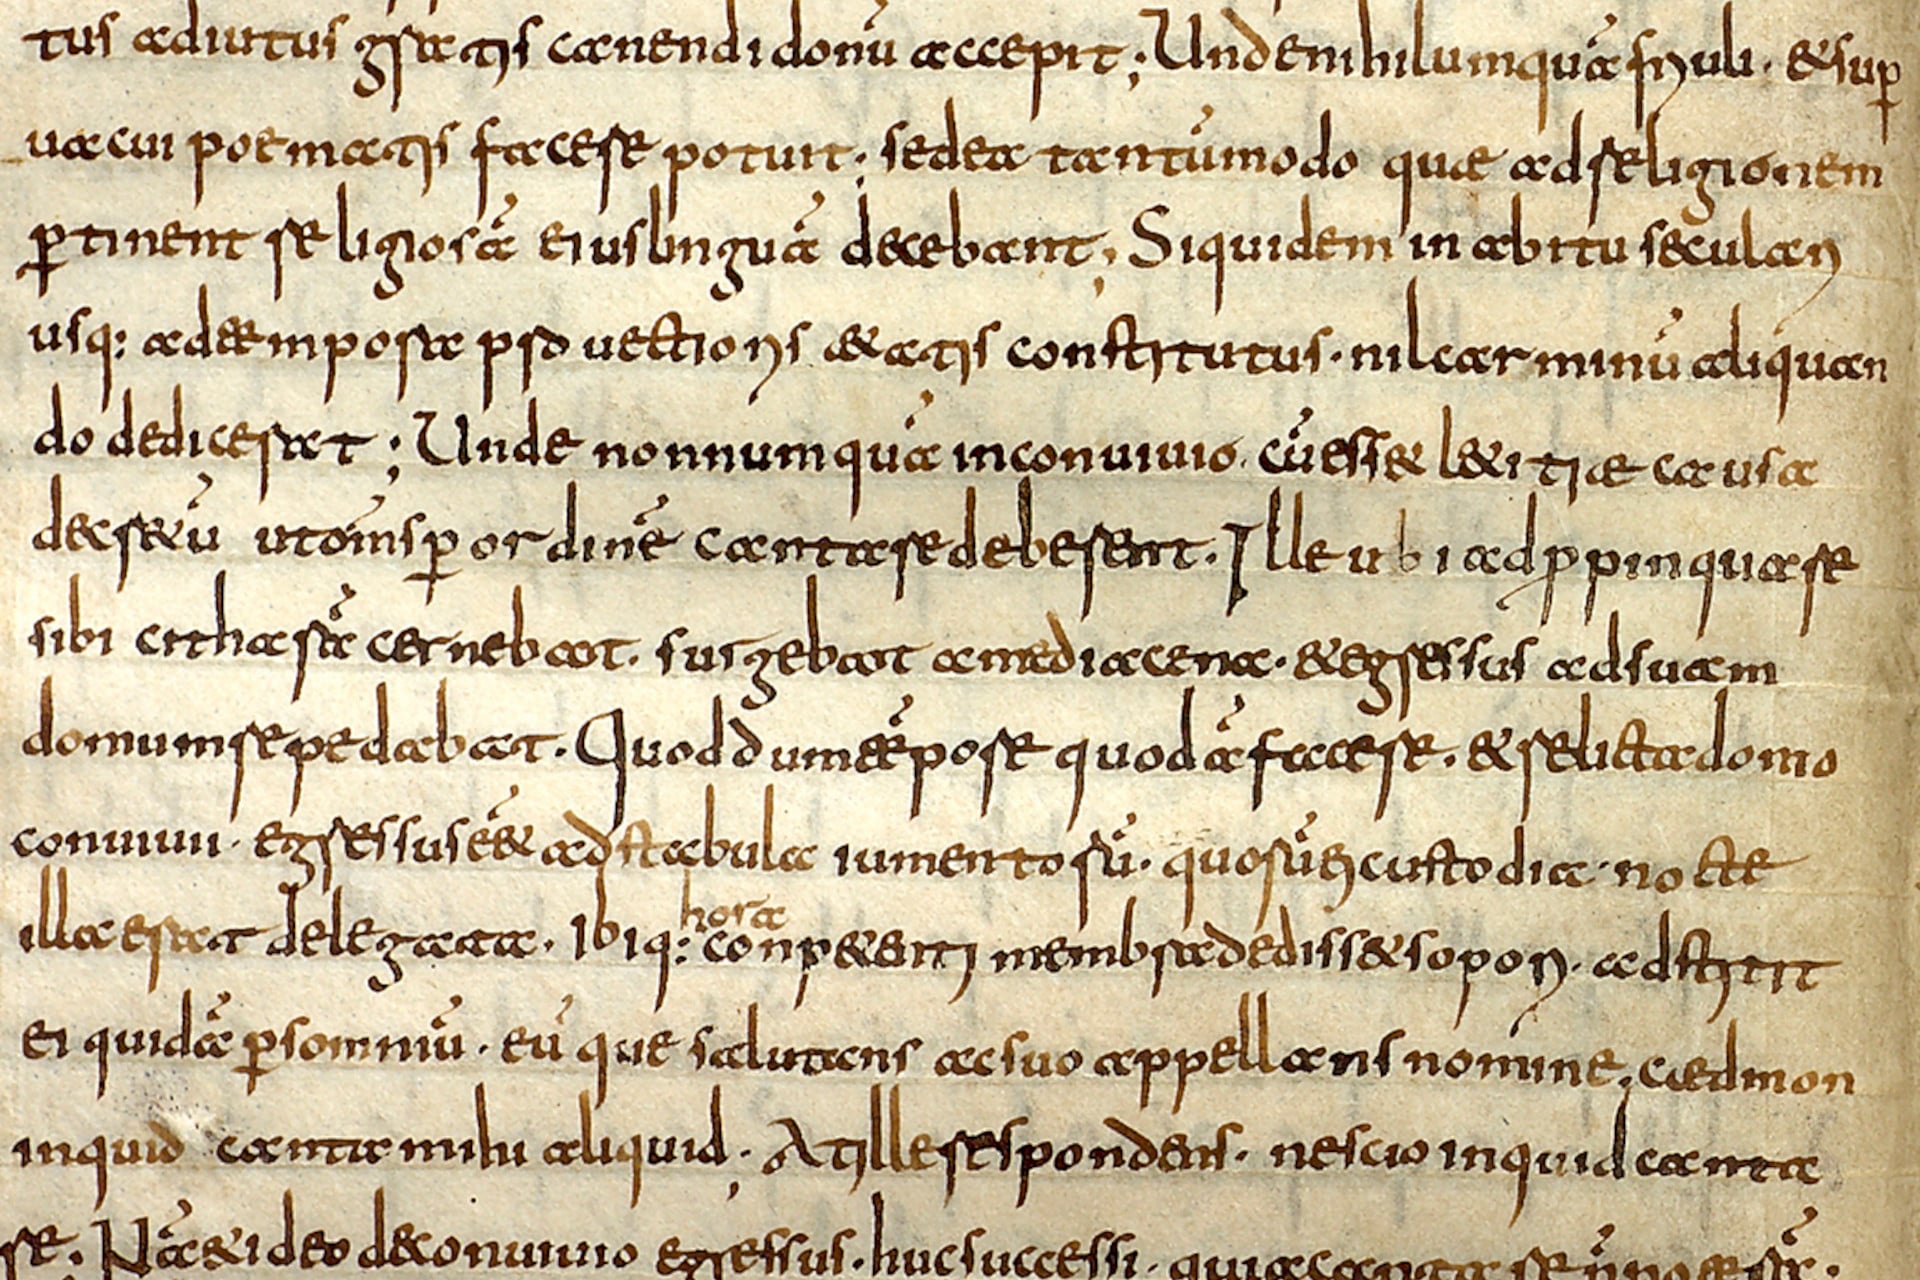 tus adiutus gratis canendi donū accepit; Unde nihil umquā friuli · & sup̄
uacui poematis facere potuit; sed ea tantūmodo quae ad religionem
p̱tinent religiosā eius linguā decebant; Siquidem in abitu seculari
usq: ad tempora prouectioris &atis constitutus · nil carminū aliquan
do dedicerat; Unde nonnumquā in conuiuio · cū ess& l&itiae causa
decretū ut om̄is p̱ ordinē cantare deberent. Ille ubi adp̱pinquare
sibi citharā cernebat. surgebat a media cena · & egressus ad suam
domum repedabat. Quod dum tēpore quodā facere · & relicta domo
conuiuii · egressus ē& ad stabula iumentorū · quorū ei custodia · nocte
illa erat delegata. Ibiq: hora conp&enti membra dediss& sopori · adstitit
Ei quidā p̱ somniū · eūque salutans ac suo appellans nomine; caedmon
inquid canta mihi aliquid. At ille respondens · nescio inquid canta
re; Nā & ideo de conuiuio egressus · huc successi · quia cantare